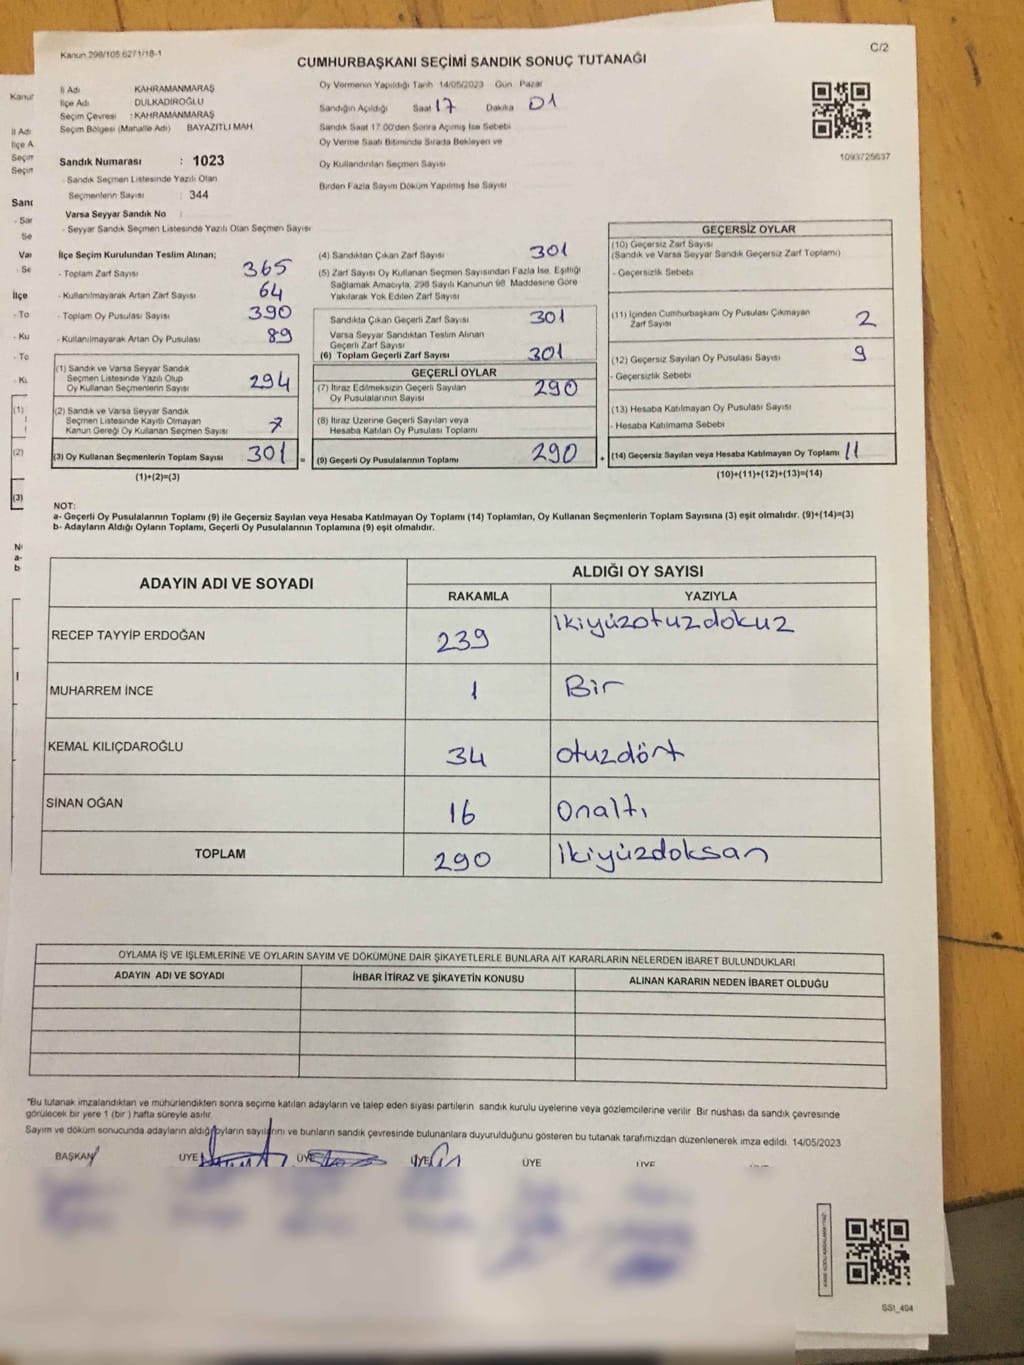 Kanun 298/105 6271/18-1
C/2
CUMHURBAŞKANI SEÇİMİ SANDIK SONUÇ TUTANAĞI
İl Adı KAHRAMANMARAŞ
İlçe Adı DULKADİROĞLU
Seçim Çevresi : KAHRAMANMARAŞ
Seçim Bölgesi (Mahalle Adı) BAYAZITLI MAH
Sandık Numarası : 1023
- Sandık Seçmen Listesinde Yazılı Olan
Seçmenlerin Sayısı : 344
Varsa Seyyar Sandık No
- Seyyar Sandık Seçmen Listesinde Yazılı Olan Seçmen Sayısı
Oy Vermenin Yapıldığı Tarih 14/05/2023 Gün Pazar
Sandığın Açıldığı Saat 17 Dakika 01
Sandık Saat 17.00'den Sonra Açımış İse Sebebi
Oy Verme Saati Bitiminde Sırada Bekleyen ve
Oy Kullandırılan Seçmen Sayısı
Birden Fazla Sayım Döküm Yapılmış İse Sayısı
1093725637
İlçe Seçim Kurulundan Teslim Alınan;
- Toplam Zarf Sayısı 365
- Kullanılmayarak Artan Zarf Sayısı 64
- Toplam Oy Pusulası Sayısı 390
- Kullanılmayarak Artan Oy Pusulası 89
(1) Sandık ve Varsa Seyyar Sandık
Seçmen Listesinde Yazılı Olup
Oy Kullanan Seçmenlerin Sayısı 294
(2) Sandık ve Varsa Seyyar Sandık
Seçmen Listesinde Kayıtlı Olmayan
Kanun Gereği Oy Kullanan Seçmen Sayısı 7
(3) Oy Kullanan Seçmenlerin Toplam Sayısı 301 =
(1)+(2)=(3)
(4) Sandıktan Çıkan Zarf Sayısı 301
(5) Zarf Sayısı Oy Kullanan Seçmen Sayısından Fazla İse, Eşitliği
Sağlamak Amacıyla, 298 Sayılı Kanunun 98. Maddesine Göre
Yakılarak Yok Edilen Zarf Sayısı
Sandıkta Çıkan Geçerli Zarf Sayısı 301
Varsa Seyyar Sandıktan Teslim Alınan
Geçerli Zarf Sayısı
(6) Toplam Geçerli Zarf Sayısı 301
GEÇERLİ OYLAR
(7) İtiraz Edilmeksizin Geçerli Sayılan
Oy Pusulalarının Sayısı 290
(8) İtiraz Üzerine Geçerli Sayılan veya
Hesaba Katılan Oy Pusulası Toplamı
(9) Geçerli Oy Pusulalarının Toplamı 290 +
GEÇERSİZ OYLAR
(10) Geçersiz Zarf Sayısı
(Sandık ve Varsa Seyyar Sandık Geçersiz Zarf Toplamı)
- Geçersizlik Sebebi
(11) İçinden Cumhurbaşkanı Oy Pusulası Çıkmayan
Zarf Sayısı 2
(12) Geçersiz Sayılan Oy Pusulası Sayısı 9
- Geçersizlik Sebebi
(13) Hesaba Katılmayan Oy Pusulası Sayısı
- Hesaba Katılmama Sebebi
(14) Geçersiz Sayılan veya Hesaba Katılmayan Oy Toplamı 11
(10)+(11)+(12)+(13)=(14)
NOT:
a- Geçerli Oy Pusulalarının Toplamı (9) ile Geçersiz Sayılan veya Hesaba Katılmayan Oy Toplamı (14) Toplamları, Oy Kullanan Seçmenlerin Toplam Sayısına (3) eşit olmalıdır. (9)+(14)=(3)
b- Adayların Aldığı Oyların Toplamı, Geçerli Oy Pusulalarının Toplamına (9) eşit olmalıdır.
ADAYIN ADI VE SOYADI
ALDIĞI OY SAYISI
RAKAMLA YAZIYLA
RECEP TAYYİP ERDOĞAN 239 ikiyüzotuzdokuz
MUHARREM İNCE 1 Bir
KEMAL KILIÇDAROĞLU 34 otuzdört
SİNAN OĞAN 16 Onaltı
TOPLAM 290 ikiyüzdoksan
OYLAMA İŞ VE İŞLEMLERİNE VE OYLARIN SAYIM VE DÖKÜMÜNE DAİR ŞİKAYETLERLE BUNLARA AİT KARARLARIN NELERDEN İBARET BULUNDUKLARI
ADAYIN ADI VE SOYADI İHBAR İTİRAZ VE ŞİKAYETİN KONUSU ALINAN KARARIN NEDEN İBARET OLDUĞU
*Bu tutanak imzalandıktan ve mühürlendikten sonra seçime katılan adayların ve talep eden siyasi partilerin sandık kurulu üyelerine veya gözlemcilerine verilir. Bir nüshası da sandık çevresinde
görülecek bir yere 1 (bir) hafta süreyle asılır.
Sayım ve döküm sonucunda adayların aldığı oyların sayılarını ve bunların sandık çevresinde bulunanlara duyurulduğunu gösteren bu tutanak tarafımızdan düzenlenerek imza edildi. 14/05/2023
BAŞKAN ÜYE ÜYE ÜYE ÜYE ÜYE
SSI_404